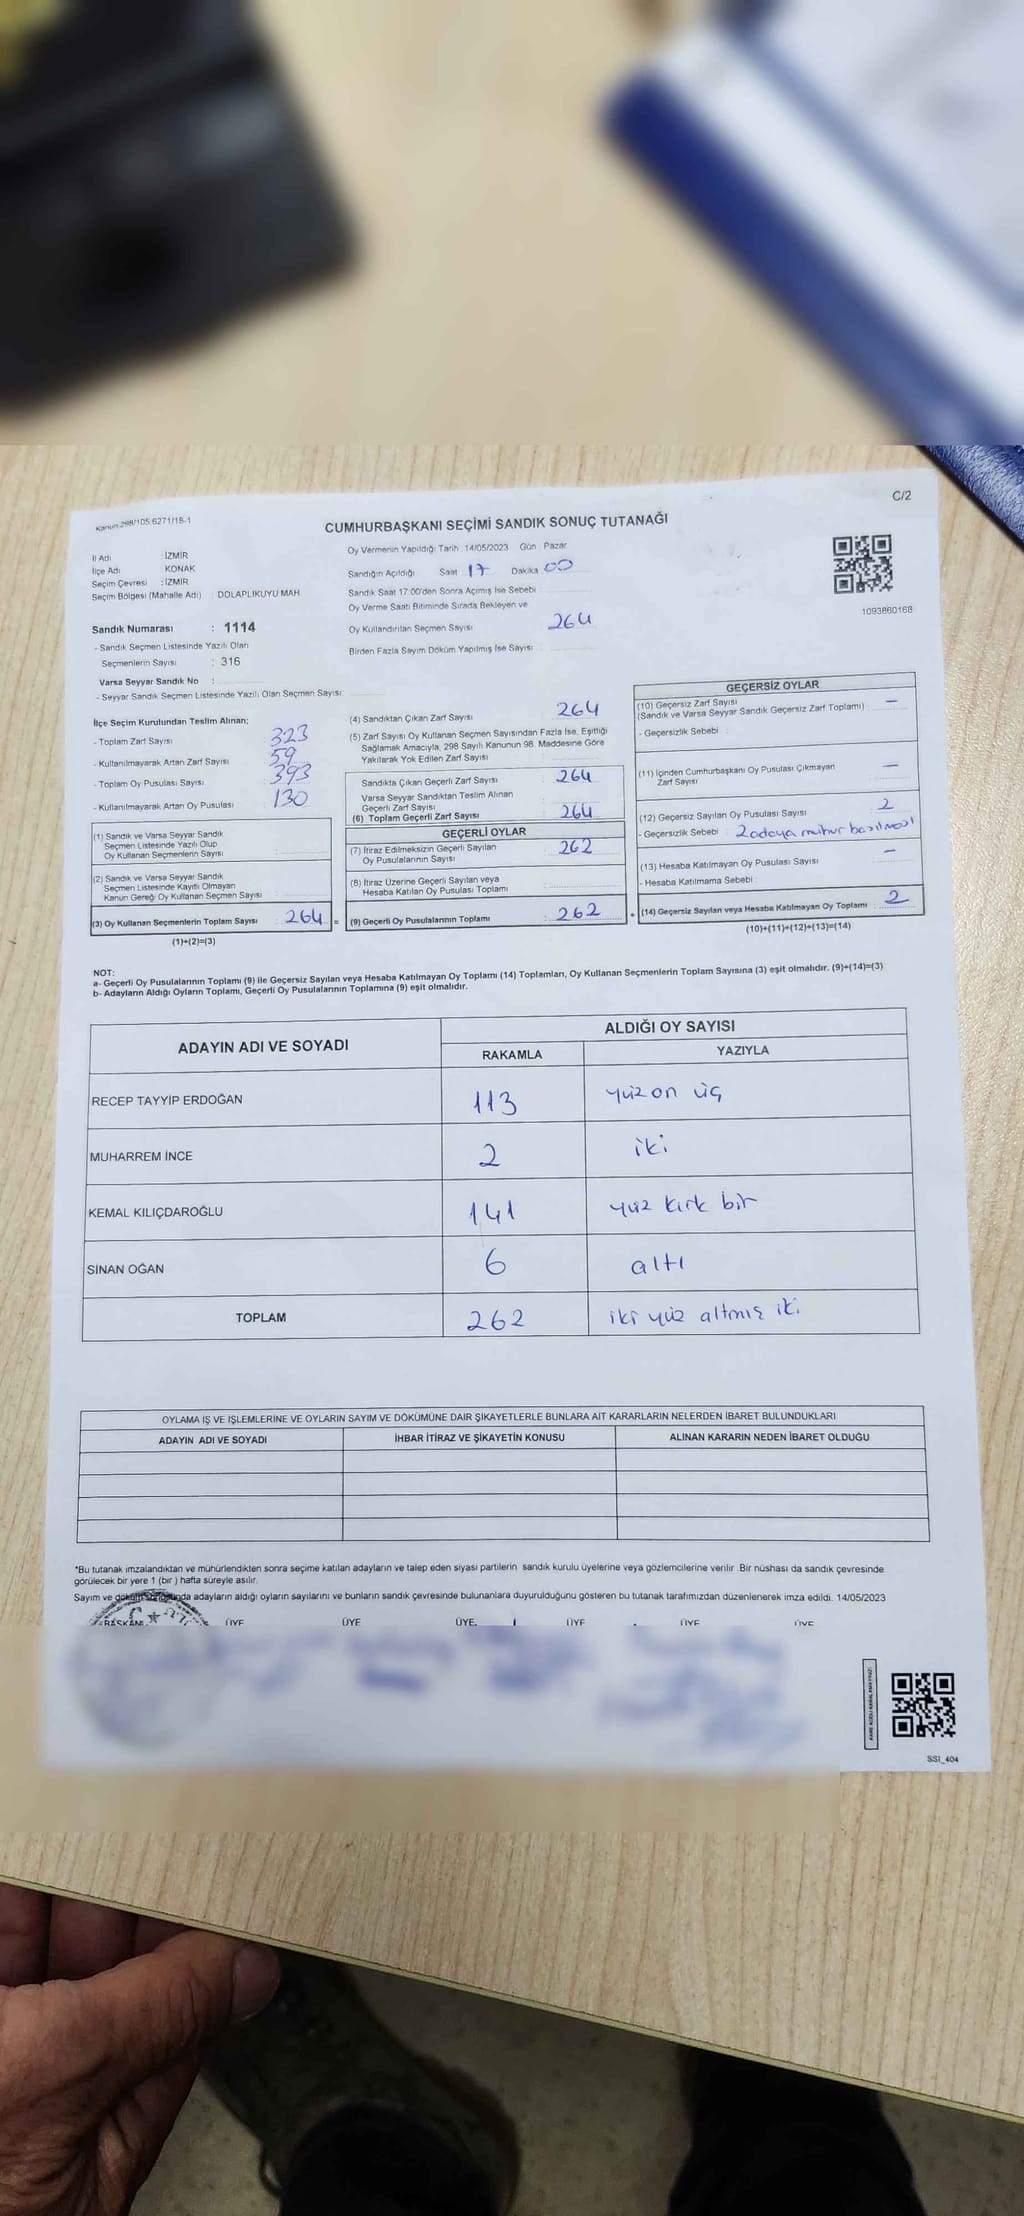 Kanun:298/105;6271/18-1
C/2
CUMHURBAŞKANI SEÇİMİ SANDIK SONUÇ TUTANAĞI
İl Adı : İZMİR
İlçe Adı : KONAK
Seçim Çevresi : İZMİR
Seçim Bölgesi (Mahalle Adı) : DOLAPLIKUYU MAH.
Oy Vermenin Yapıldığı Tarih 14/05/2023 Gün Pazar
Sandığın Açıldığı Saat 17 Dakika 00
Sandık Saat 17:00'den Sonra Açımış İse Sebebi
Oy Verme Saati Bitiminde Sırada Bekleyen ve
Oy Kullandırılan Seçmen Sayısı 264
Birden Fazla Sayım Döküm Yapılmış İse Sayısı :
1093860168
Sandık Numarası : 1114
- Sandık Seçmen Listesinde Yazılı Olan
Seçmenlerin Sayısı : 316
Varsa Seyyar Sandık No :
- Seyyar Sandık Seçmen Listesinde Yazılı Olan Seçmen Sayısı
İlçe Seçim Kurulundan Teslim Alınan;
- Toplam Zarf Sayısı : 323
- Kullanılmayarak Artan Zarf Sayısı : 59
- Toplam Oy Pusulası Sayısı : 393
- Kullanılmayarak Artan Oy Pusulası : 130
(1) Sandık ve Varsa Seyyar Sandık
Seçmen Listesinde Yazılı Olup
Oy Kullanan Seçmenlerin Sayısı
(2) Sandık ve Varsa Seyyar Sandık
Seçmen Listesinde Kayıtlı Olmayan
Kanun Gereği Oy Kullanan Seçmen Sayısı
(3) Oy Kullanan Seçmenlerin Toplam Sayısı : 264 =
(1)+(2)=(3)
(4) Sandıktan Çıkan Zarf Sayısı 264
(5) Zarf Sayısı Oy Kullanan Seçmen Sayısından Fazla İse, Eşitliği
Sağlamak Amacıyla, 298 Sayılı Kanunun 98. Maddesine Göre
Yakılarak Yok Edilen Zarf Sayısı
Sandıkta Çıkan Geçerli Zarf Sayısı : 264
Varsa Seyyar Sandıktan Teslim Alınan
Geçerli Zarf Sayısı
(6) Toplam Geçerli Zarf Sayısı : 264
GEÇERLİ OYLAR
(7) İtiraz Edilmeksizin Geçerli Sayılan
Oy Pusulalarının Sayısı : 262
(8) İtiraz Üzerine Geçerli Sayılan veya
Hesaba Katılan Oy Pusulası Toplamı
(9) Geçerli Oy Pusulalarının Toplamı : 262 +
GEÇERSİZ OYLAR
(10) Geçersiz Zarf Sayısı
(Sandık ve Varsa Seyyar Sandık Geçersiz Zarf Toplamı) : —
- Geçersizlik Sebebi :
(11) İçinden Cumhurbaşkanı Oy Pusulası Çıkmayan
Zarf Sayısı —
(12) Geçersiz Sayılan Oy Pusulası Sayısı : 2
- Geçersizlik Sebebi : 2 adaya mühür basılması
(13) Hesaba Katılmayan Oy Pusulası Sayısı : —
- Hesaba Katılmama Sebebi :
(14) Geçersiz Sayılan veya Hesaba Katılmayan Oy Toplamı : 2
(10)+(11)+(12)+(13)=(14)
NOT:
a- Geçerli Oy Pusulalarının Toplamı (9) ile Geçersiz Sayılan veya Hesaba Katılmayan Oy Toplamı (14) Toplamları, Oy Kullanan Seçmenlerin Toplam Sayısına (3) eşit olmalıdır. (9)+(14)=(3)
b- Adayların Aldığı Oyların Toplamı, Geçerli Oy Pusulalarının Toplamına (9) eşit olmalıdır.
ADAYIN ADI VE SOYADI
ALDIĞI OY SAYISI
RAKAMLA YAZIYLA
RECEP TAYYİP ERDOĞAN 113 yüz on üç
MUHARREM İNCE 2 iki
KEMAL KILIÇDAROĞLU 141 yüz kırk bir
SİNAN OĞAN 6 altı
TOPLAM 262 iki yüz altmış iki
OYLAMA İŞ VE İŞLEMLERİNE VE OYLARIN SAYIM VE DÖKÜMÜNE DAİR ŞİKAYETLERLE BUNLARA AİT KARARLARIN NELERDEN İBARET BULUNDUKLARI
ADAYIN ADI VE SOYADI İHBAR İTİRAZ VE ŞİKAYETİN KONUSU ALINAN KARARIN NEDEN İBARET OLDUĞU
*Bu tutanak imzalandıktan ve mühürlendikten sonra seçime katılan adayların ve talep eden siyasi partilerin sandık kurulu üyelerine veya gözlemcilerine verilir. Bir nüshası da sandık çevresinde
görülecek bir yere 1 (bir ) hafta süreyle asılır.
Sayım ve döküm sonucunda adayların aldığı oyların sayılarını ve bunların sandık çevresinde bulunanlara duyurulduğunu gösteren bu tutanak tarafımızdan düzenlenerek imza edildi. 14/05/2023
BAŞKAN ÜYE ÜYE ÜYE ÜYE ÜYE ÜYE
SSI_404